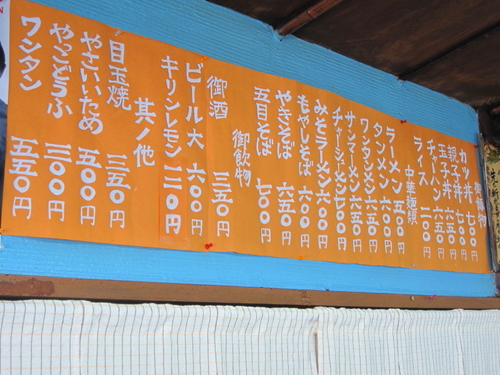 御飯物
カツ丼 七〇〇円
親子丼 七〇〇円
玉子丼 六五〇円
チャーハン 六五〇円
ライス 二〇〇円
中華麺類
ラーメン 五〇〇円
タンメン 六〇〇円
ワンタンメン 六五〇円
サンマーメン 六五〇円
チャーシューメン 七〇〇円
みそラーメン 六〇〇円
もやしそば 六〇〇円
やきそば 六五〇円
五目そば 七〇〇円
御飲物
御酒 三五〇円
ビール大 六〇〇円
キリンレモン 一二〇円
其ノ他
目玉焼 三五〇円
やさいいため 五〇〇円
やっこどうふ 三〇〇円
ワンタン 五五〇円